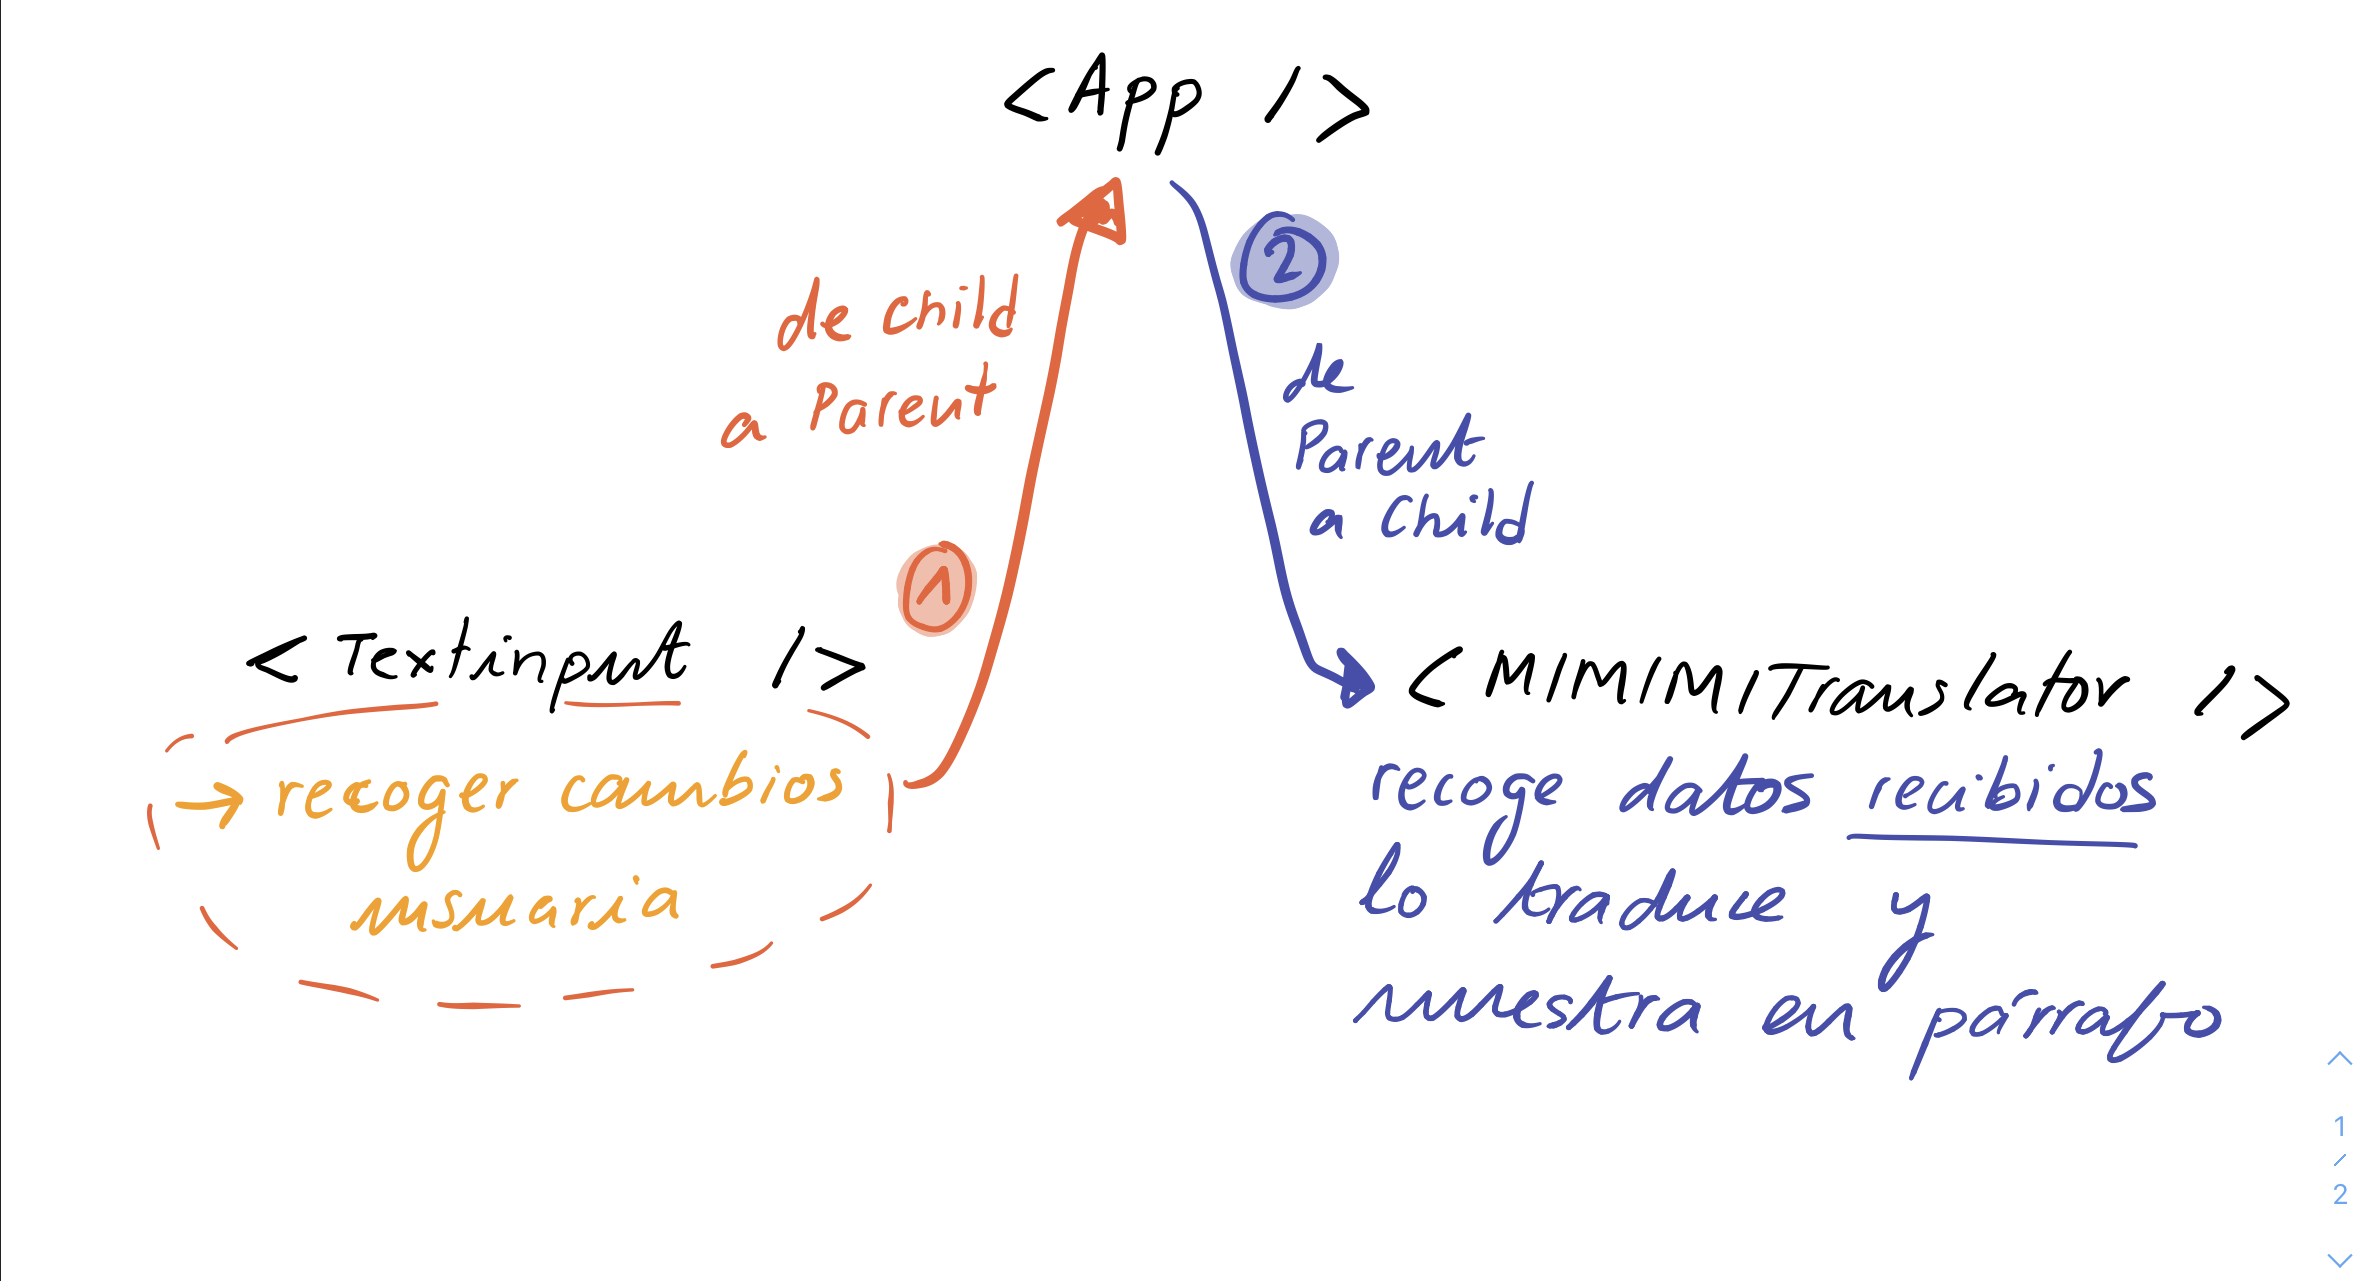 <App />
2
de child
a Parent
de
Parent
a Child
1
<Textinput />
→ recoger cambios
usuaria
<MIMIMITranslator />
recoge datos recibidos
lo traduce y
muestra en párrafo
1
/
2